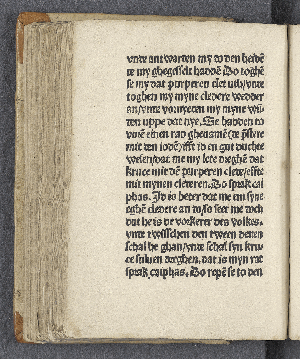 vnde antwarden my to den heiden
se my ghegesselt hadden Do toghen
se my dat purperen clet vth/vnde
toghen my myne cledere wedder
an/vnde
ten vppe dat nye. Se hadden to
uoren einen rad
mit den ioden/
wesen/dat me my lete dreghen dat
kruce mit dem purperen clede/effte
mit mynen clederen. Do sprak cai
phas. Id is beter dat me em syne
eghen cledere an do/so seet me doch
dat he is de vorkerer des volkes.
vnde twisschen den tween deuen
schal he ghan/vnde schal syn kru
ce suluen dreghen. dat is myn rat
sprak cayphas. Do repen se to den